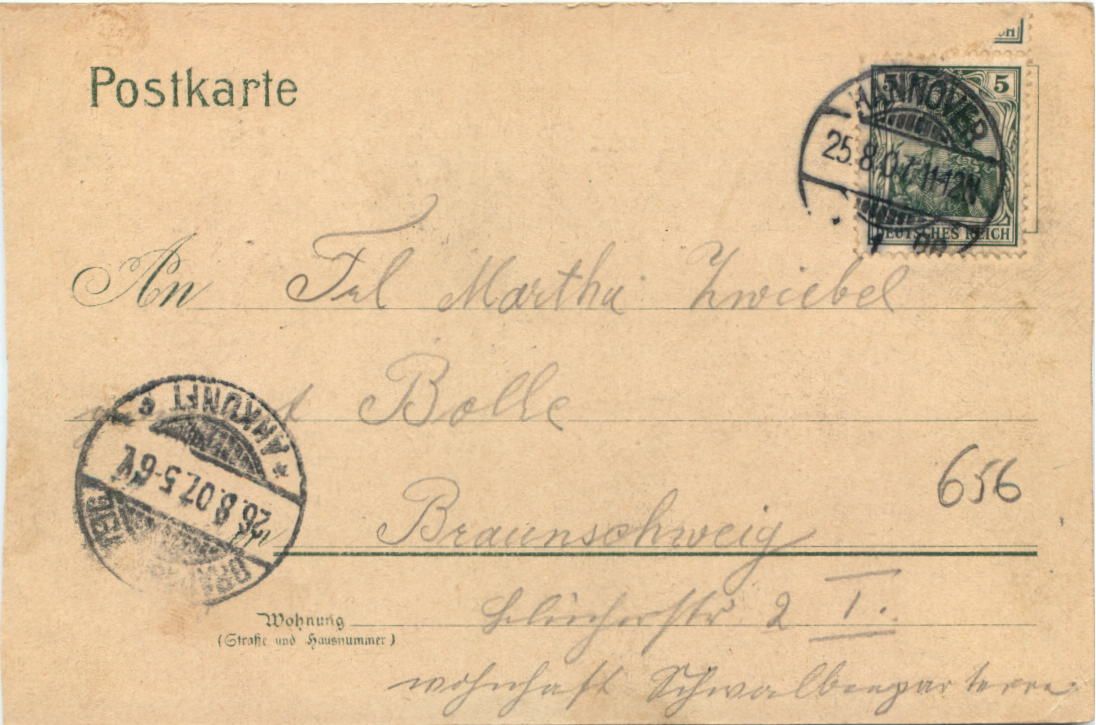 Postkarte
5 5
HANNOVER
25.8.07.11-12N
DEUTSCHES REICH
An Frl Martha Zwiebel
Bolle
ANKUNFT c
26.8.07.5-6V.
656
Braunschweig
Wohnung
(Straße und Hausnummer)
Blücherstr 2 I.
wohnhaft Schwalbenparterre